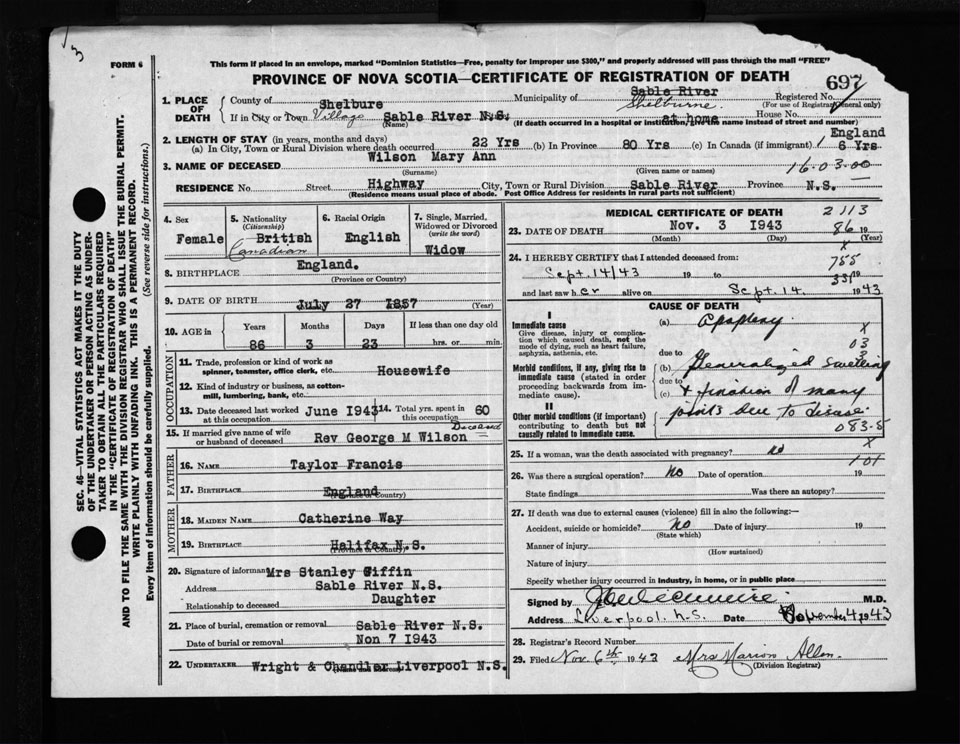 3
FORM 6
This form if placed in an envelope, marked "Dominion Statistics—Free, penalty for improper use $300," and properly addressed will pass through the mail "FREE"
PROVINCE OF NOVA SCOTIA—CERTIFICATE OF REGISTRATION OF DEATH
697
1. PLACE OF DEATH
County of Shelbure Municipality of Sable River Shelburne Registered No.
(For use of Registrar General only)
If in City or Town Village Sable River N.S. at home House No.
(Name) (If death occurred in a hospital or institution, give the name instead of street and number)
2. LENGTH OF STAY (in years, months and days) England
(a) In City, Town or Rural Division where death occurred 22 Yrs (b) In Province 80 Yrs (c) In Canada (if immigrant) 6 Yrs
3. NAME OF DECEASED Wilson Mary Ann 16-03-00
(Surname) (Given name or names)
RESIDENCE No. Street Highway City, Town or Rural Division Sable River Province N.S.
(Residence means usual place of abode. Post Office Address for residents in rural parts not sufficient)
4. Sex
Female
5. Nationality
(Citizenship)
British
Canadian
6. Racial Origin
English
7. Single, Married, Widowed or Divorced
(write the word)
Widow
8. BIRTHPLACE England.
(Province or Country)
9. DATE OF BIRTH July 27 1857 (Year)
10. AGE in
Years Months Days If less than one day old
86 3 23 hrs. or min.
OCCUPATION
11. Trade, profession or kind of work as spinner, teamster, office clerk, etc. Housewife
12. Kind of industry or business, as cotton-mill, lumbering, bank, etc.
13. Date deceased last worked at this occupation June 1943
14. Total yrs. spent in this occupation 60
15. If married give name of wife or husband of deceased Rev George M Wilson Deceased
FATHER
16. NAME Taylor Francis
17. BIRTHPLACE England
(Province or Country)
MOTHER
18. MAIDEN NAME Catherine Way
19. BIRTHPLACE Halifax N.S.
(Province or Country)
20. Signature of informant Mrs Stanley Giffin
Address Sable River N.S.
Relationship to deceased Daughter
21. Place of burial, cremation or removal Sable River N.S.
Date of burial or removal Non 7 1943
22. UNDERTAKER Wright & Chandler Liverpool N.S.
MEDICAL CERTIFICATE OF DEATH 2113
23. DATE OF DEATH Nov. 3 1943 86 19
(Month) (Day) (Year)
x
24. I HEREBY CERTIFY that I attended deceased from: 755
Sept. 14/43 19 to 331 19
and last saw her alive on Sept. 14. 1943
CAUSE OF DEATH
I
Immediate cause
Give disease, injury or complication which caused death, not the mode of dying, such as heart failure, asphyxia, asthenia, etc.
(a) Apoplexy. x
03
due to 3
Morbid conditions, if any, giving rise to immediate cause (stated in order proceeding backwards from immediate cause).
(b) Generalized swelling
due to
(c) + fixation of many
II
Other morbid conditions (if important) contributing to death but not causally related to immediate cause.
joints due to disease.
083-5
x
25. If a woman, was the death associated with pregnancy? no
101
26. Was there a surgical operation? No Date of operation 19
State findings Was there an autopsy?
27. If death was due to external causes (violence) fill in also the following:—
Accident, suicide or homicide? No Date of injury 19
(State which)
Manner of injury
(How sustained)
Nature of injury
Specify whether injury occurred in industry, in home, or in public place
Signed by M.D.
Address Liverpool. N.S. Date November 4 1943
28. Registrar's Record Number
29. Filed Nov. 6th 1943 Mrs Marion Allen.
(Division Registrar)
SEC. 46—VITAL STATISTICS ACT MAKES IT THE DUTY
OF THE UNDERTAKER OR PERSON ACTING AS UNDER-
TAKER TO OBTAIN ALL THE PARTICULARS REQUIRED
IN THE "CERTIFICATE OF REGISTRATION OF DEATH"
AND TO FILE THE SAME WITH THE DIVISION REGISTRAR WHO SHALL ISSUE THE BURIAL PERMIT.
WRITE PLAINLY WITH UNFADING INK. THIS IS A PERMANENT RECORD.
Every item of information should be carefully supplied. (See reverse side for instructions.)